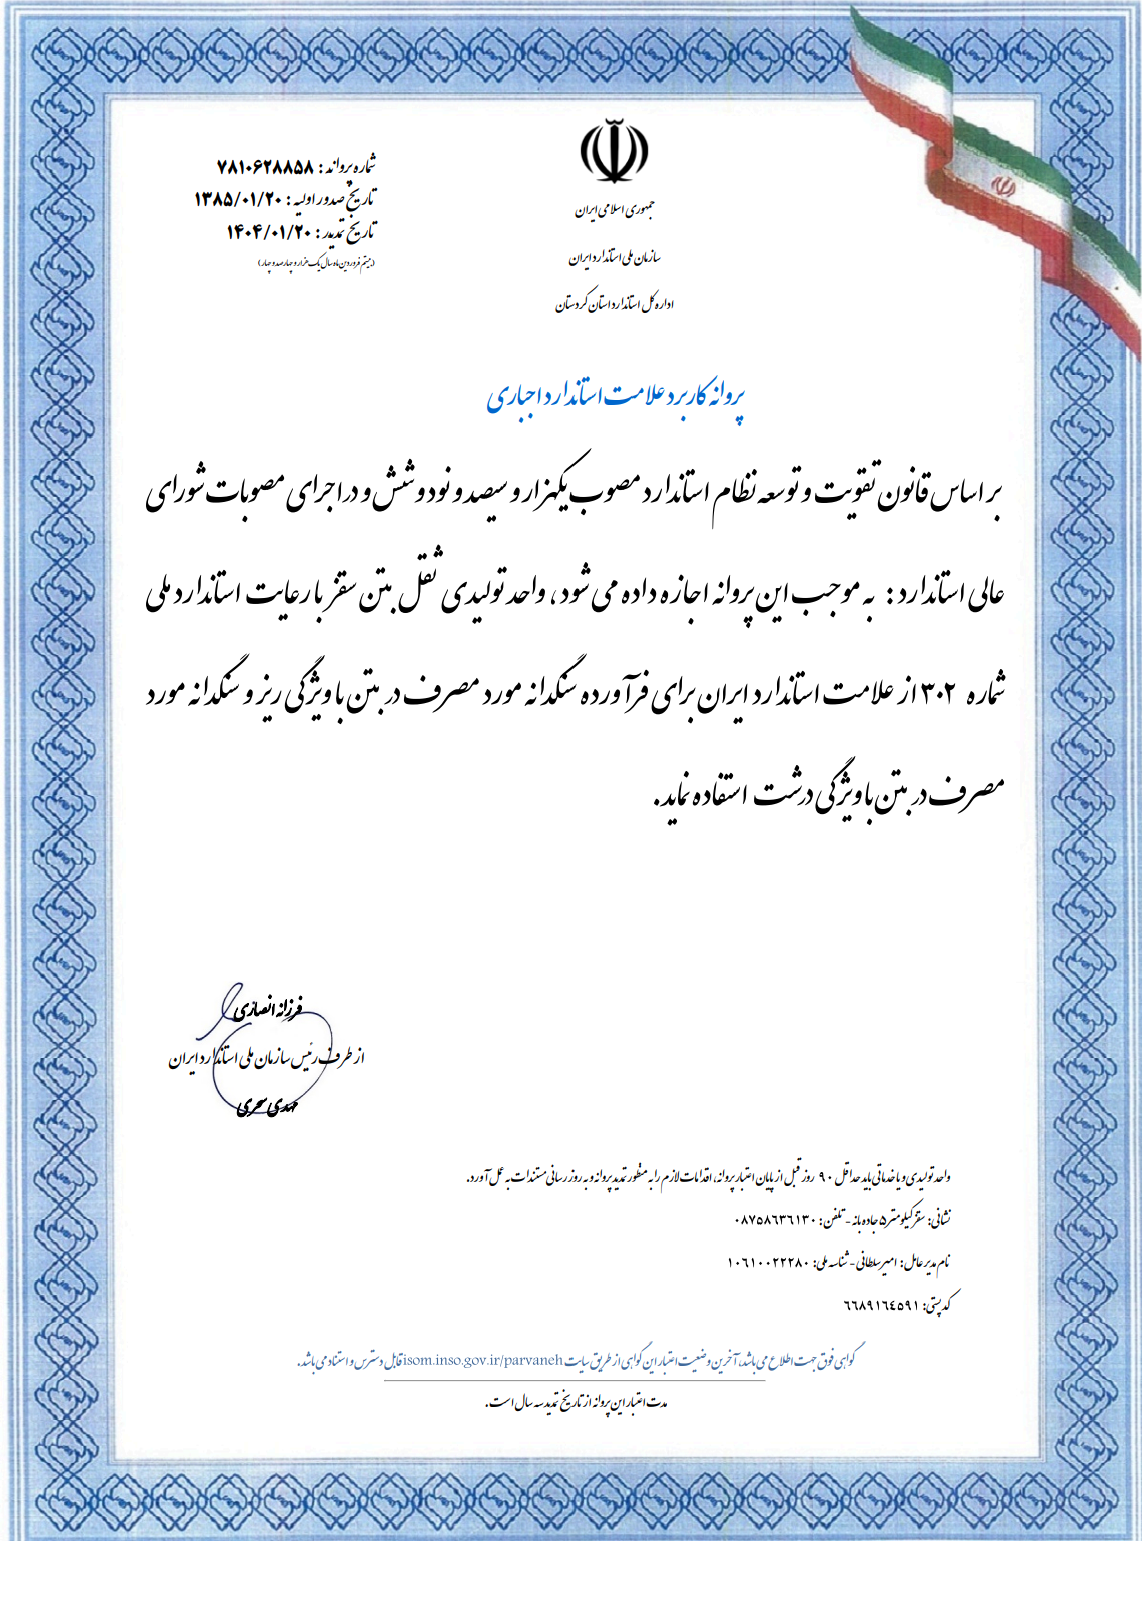 جمهوری اسلامی ایران
سازمان ملی استاندارد ایران
اداره کل استاندارد استان کردستان
شماره پروانه : ۷۸۱۰۶۲۸۸۵۸
تاریخ صدور اولیه : ۱۳۸۵/۰۱/۲۰
تاریخ تمدید : ۱۴۰۴/۰۱/۲۰
(بیستم فروردین ماه سال یک هزار و چهارصد و چهار)
پروانه کاربرد علامت استاندارد اجباری
بر اساس قانون تقویت و توسعه نظام استاندارد مصوب یکهزار و سیصد و نود و شش و در اجرای مصوبات شورای
عالی استاندارد : به موجب این پروانه اجازه داده می شود، واحد تولیدی ثقل بتن سقز با رعایت استاندارد ملی
شماره ۳۰۲ از علامت استاندارد ایران برای فرآورده سنگدانه مورد مصرف در بتن با ویژگی ریز و سنگدانه مورد
مصرف در بتن با ویژگی درشت استفاده نماید.
فرزانه انصاری
از طرف رئیس سازمان ملی استاندارد ایران
مهدی سحری
واحد تولیدی و یا خدماتی باید حداقل ۹۰ روز قبل از پایان اعتبار پروانه، اقدامات لازم را به منظور تمدید پروانه و به روز رسانی مستندات به عمل آورد.
نشانی: سقز کیلومتر ۵ جاده بانه - تلفن: ۰۸۷۵۸٦۳٦۱۳۰
نام مدیر عامل: امیر سلطانی - شناسه ملی: ۱۰٦۱۰۰۲۲۲۸۰
کد پستی: ٦٦۸۹۱٦٤٥۹۱
گواهی فوق جهت اطلاع می باشد، آخرین وضعیت اعتبار این گواهی از طریق سایت isom.inso.gov.ir/parvaneh قابل دسترس و استناد می باشد.
مدت اعتبار این پروانه از تاریخ تمدید سه سال است.